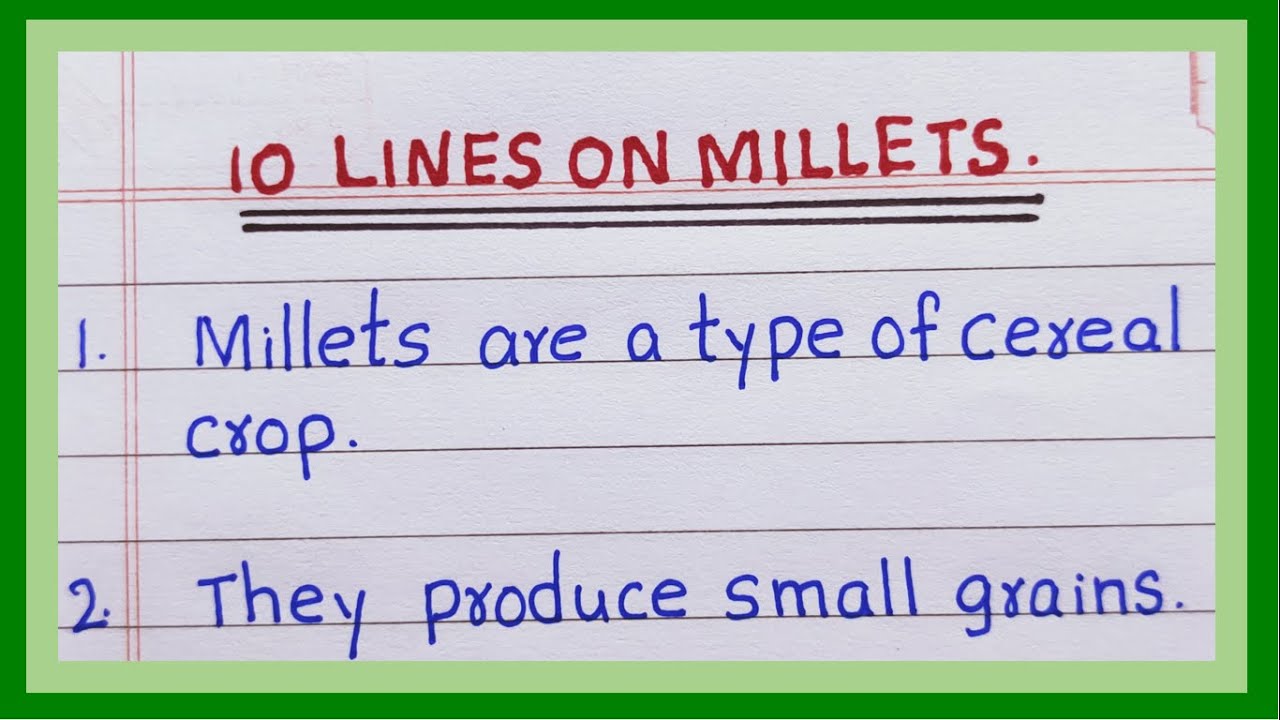 10 LINES ON MILLETS.
1. Millets are a type of cereal
crop.
2. They produce small grains.